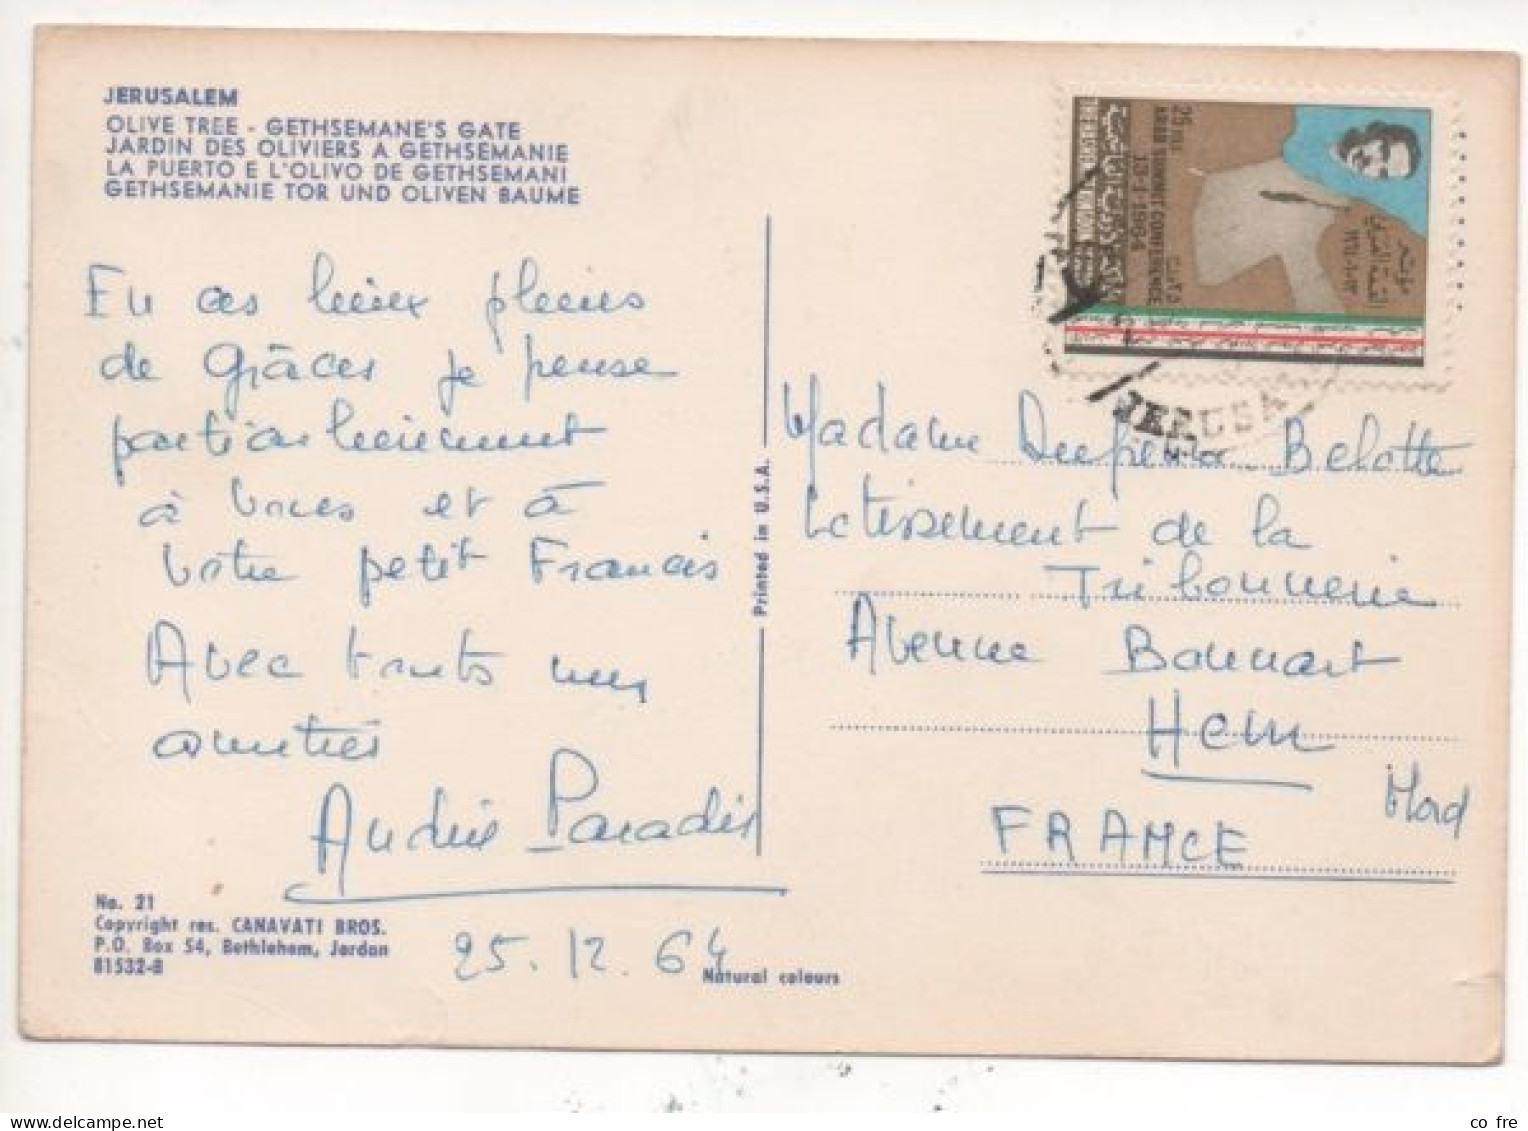 JERUSALEM
OLIVE TREE - GETHSEMANE'S GATE
JARDIN DES OLIVIERS A GETHSEMANIE
LA PUERTO E L'OLIVO DE GETHSEMANI
GETHSEMANIE TOR UND OLIVEN BAUME
En ces lieux pleins
de Grâces je pense
particulièrement
à vous et à
votre petit Francis
Avec toutes mes
amitiés
Andrée Paradis
25.12.64
No. 21
Copyright res. CANAVATI BROS.
P.O. Box 54, Bethlehem, Jordan
81532-B
Natural colours
Printed in U.S.A.
25 FILS
ARAB SUMMIT CONFERENCE,
13-1-1964
مؤتمر
القمة العربي
JERUSA
Madame Belotte
Lotissement de la
Tribonnerie
Avenue Bonnart
Hem
Nord
FRANCE
co fre